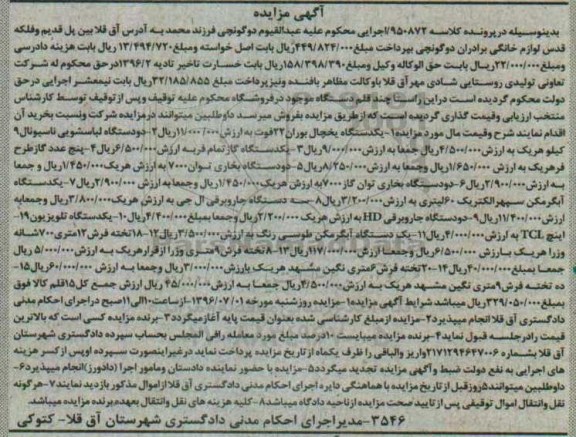 آگهی مزایده
بدینوسیله درپرونده کلاسه ۹۵۰۸۷۲/اجرایی محکوم علیه عبدالقیوم دوگونچی فرزند محمد به آدرس آق قلا بین پل قدیم وفلکه
قدس لوازم خانگی برادران دوگونچی بپرداخت مبلغ ۴۴۹/۸۲۴/۰۰۰ریال بابت اصل خواسته ومبلغ ۱۳/۴۹۴/۷۲۰ریال بابت هزینه دادرسی
ومبلغ ۲۲/۰۰۰/۰۰۰ریال بابت حق الوکاله وکیل ومبلغ ۱۵۸/۳۹۸/۳۹۰ریال بابت خسارت تاخیر تادیه ۱۳۹۶/۲درحق محکوم له شرکت
تعاونی تولیدی روستایی شادی مهرآق قلا باوکالت مظاهر بافنده ونیزپرداخت مبلغ ۳۲/۱۸۵/۸۵۵ریال بابت نیمعشر اجرایی درحق
دولت محکوم گردیده است دراین راستا چند قلم دستگاه موجود درفروشگاه محکوم علیه توقیف وپس ازتوقیف توسط کارشناس
منتخب ارزیابی وقیمت گذاری گردیده است که ازطریق مزایده بفروش میرسد داوطلبین میتوانند درمزایده شرکت ونسبت بخرید آن
اقدام نمایند شرح وقیمت مال مورد مزایده۱-یکدستگاه یخچال بوران۲۲فوت به ارزش ۱۱/۰۰۰/۰۰۰ریال۲-دودستگاه لباسشویی ناسیونال۹
کیلو هریک به ارزش۴/۵۰۰/۰۰۰ریال جمعا به ارزش۹/۰۰۰/۰۰۰ریال۳-یکدستگاه گازتمام فربه ارزش۶/۵۰۰/۰۰۰ریال۴-پنج عدد گازطرح
فرهریک به ارزش ۱/۶۵۰/۰۰۰ریال وجمعا به ارزش۸/۲۵۰/۰۰۰ریال۵-دودستگاه بخاری توان۷۰۰۰ به ارزش هریک۱/۴۵۰/۰۰۰ریال و جمعا
به ارزش۲/۹۰۰/۰۰۰ریال۶-دودستگاه بخاری توان گاز۷۰۰۰به ارزش هریک۱/۴۵۰/۰۰۰ریال وجمعا به ارزش ۲/۹۰۰/۰۰۰ریال۷-یکدستگاه
آبگرمکن سپهرالکتریک ۶۰لیتری به ارزش۳/۲۰۰/۰۰۰ریال۸-سه دستگاه جاروبرقی ال جی به ارزش هریک۳/۸۰۰/۰۰۰ریال وجمعابه
ارزش۱۱/۴۰۰/۰۰۰ریال۹-دودستگاه جاروبرقی HD به ارزش هریک ۲/۲۰۰/۰۰۰ریال وجمعا بمبلغ ۴/۴۰۰/۰۰۰ریال۱۰-یکدستگاه تلویزیون۱۹
اینچ TCL به ارزش۴/۰۰۰/۰۰۰ریال۱۱-یک دستگاه آبگرمکن طوسی رنگ به ارزش ۳/۵۰۰/۰۰۰ریال۱۲-۱۸تخته فرش۱۲متری۷۰۰شانه
وزرا هریک بارزش ۶/۵۰۰/۰۰۰ریال وجمعا ارزش۱۱۷/۰۰۰/۰۰۰ریال۱۳-۸تخته فرش۹متری وزرا ازقرارهریک به ارزش۵/۰۰۰/۰۰۰ ریال
جمعا بمبلغ۴۰/۰۰۰/۰۰۰ریال۱۴-۲۰تخته فرش۶متری نگین مشهد هریک بارزش۳/۰۰۰/۰۰۰ریال وجمعا به ارزش ۶۰/۰۰۰/۰۰۰ریال۱۵-
ده تخته فرش۹متری نگین مشهد هریک به ارزش۴/۵۰۰/۰۰۰ریال جمعا به ارزش۴۵/۰۰۰/۰۰۰ ریال ارزش جمع کل۱۵قلم کالا فوق
بمبلغ۳۲۹/۰۵۰/۰۰۰ریال میباشد شرایط آگهی مزایده۱-مزایده روزشنبه مورخه ۱۳۹۶/۰۷/۰۱-ازساعت۱۰الی۱۱صبح دراجرای احکام مدنی
دادگستری آق قلا انجام میپذیرد۲-مزایده ازمبلغ کارشناسی شده بعنوان قیمت پایه آغازمیگردد۳-برنده مزایده کسی است که بالاترین
قیمت رادرجلسه قبول نماید۴-برنده مزایده میبایست ۱۰درصد مبلغ مورد معامله رافی المجلس بحساب سپرده دادگستری شهرستان
آق قلا بشماره ۲۱۷۱۲۹۴۶۴۷۰۰۶واریز والباقی را ظرف یکماه ازتاریخ مزایده پرداخت نماید درغیراینصورت سپرده اوپس ازکسر هزینه
های اجرایی به نفع دولت ضبط وآگهی مزایده تجدید میگردد۵-مزایده با حضور نماینده دادستان ومامور اجرا (دادورز)انجام میپذیرد۶-
داوطلبین میتوانند۵روزقبل ازتاریخ مزایده با هماهنگی دایره اجرای احکام مدنی دادگستری آق قلا ازاموال مذکور بازدید نمایند۷-هرگونه
نقل وانتقال اموال توقیفی پس ازتایید صحت مزایده ازناحیه دادگاه میباشد۸-کلیه هزینه های نقل وانتقال بعهده برنده مزایده میباشد.
۳۵۴۶-مدیراجرای احکام مدنی دادگستری شهرستان آق قلا- کتوکی